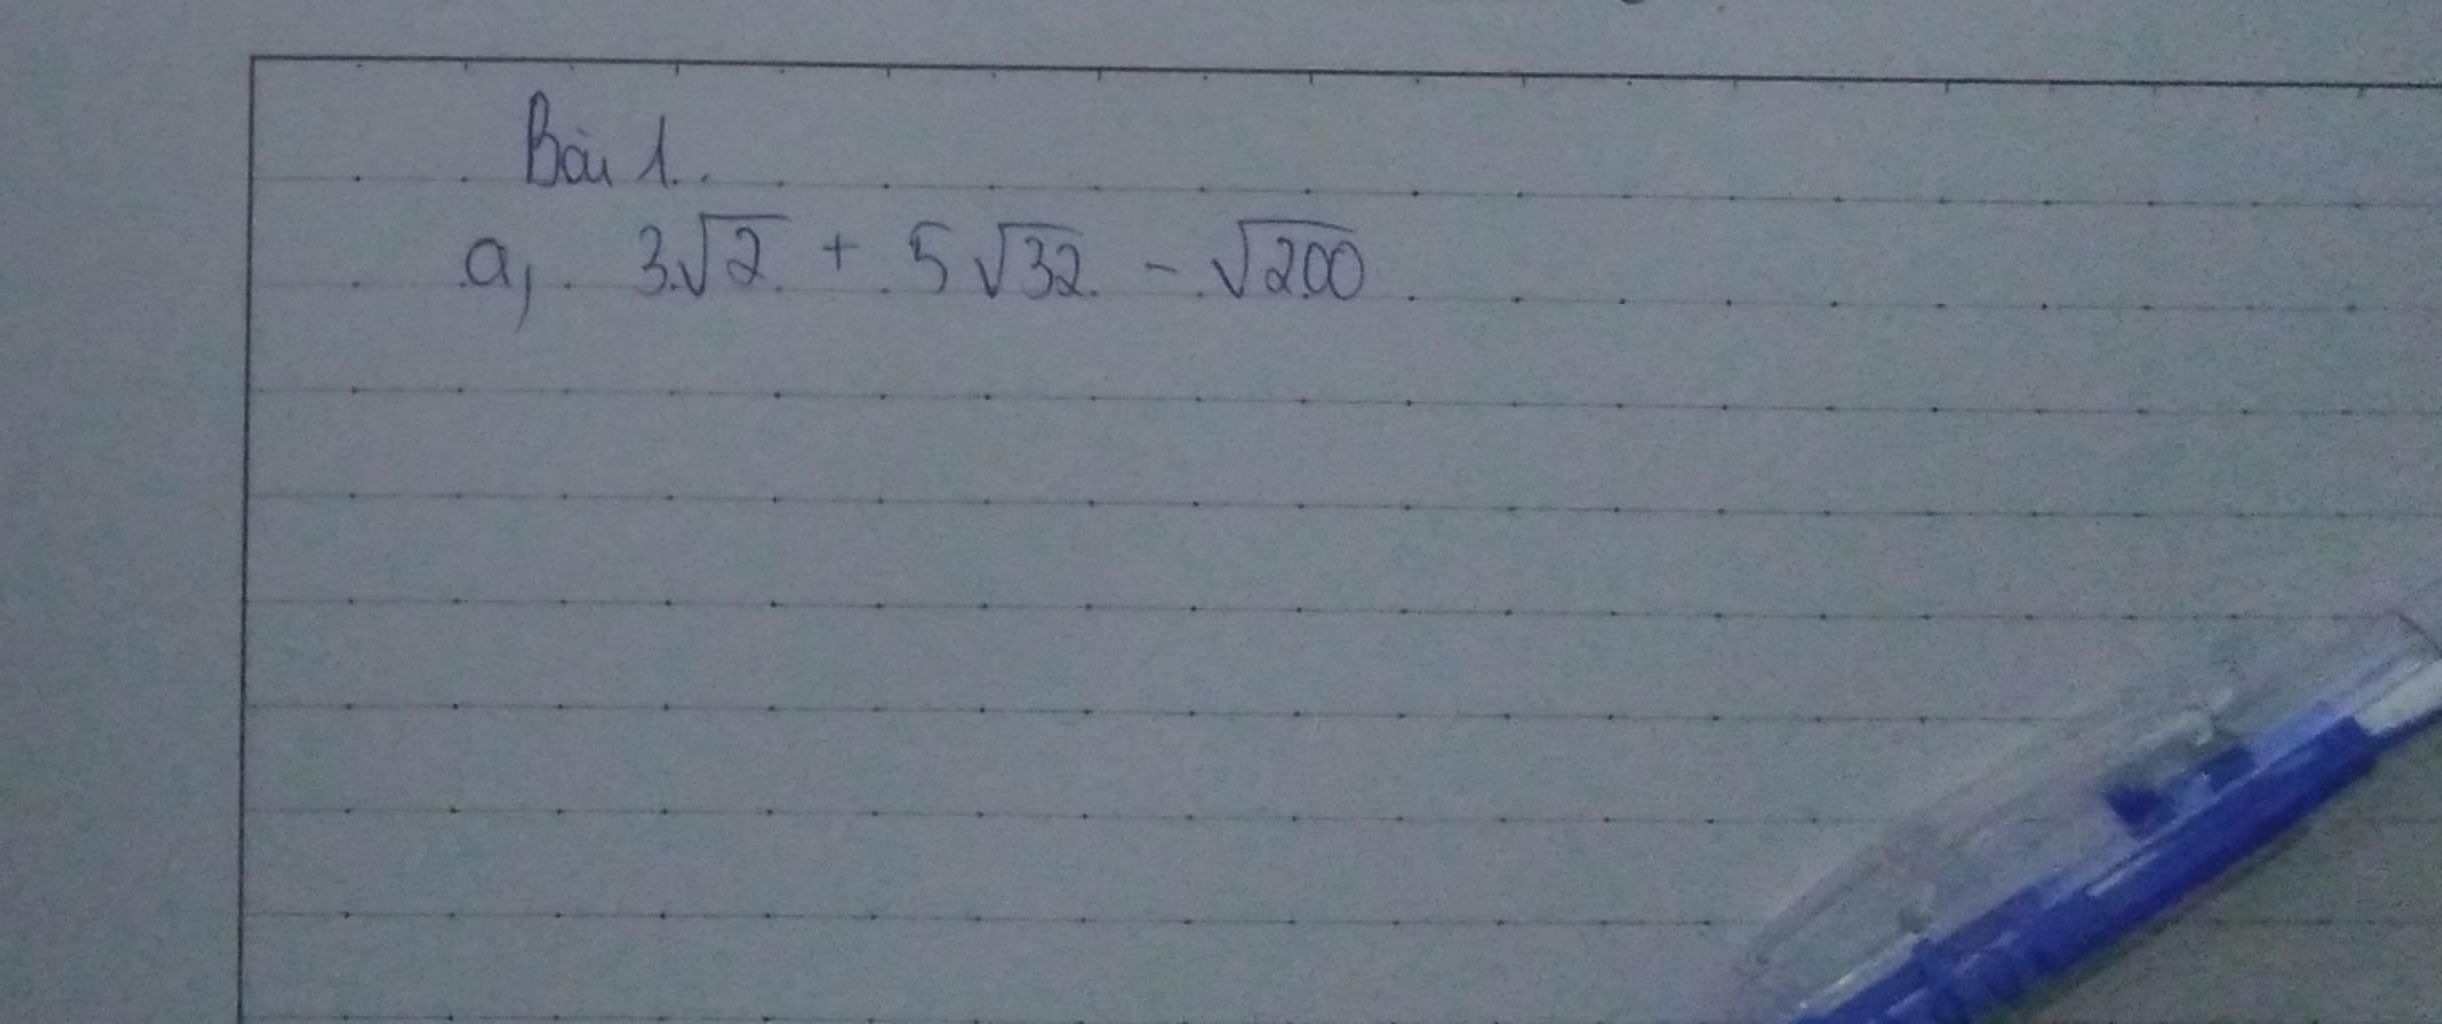 Bài 1.
a, 3√2 + 5√32 - √200